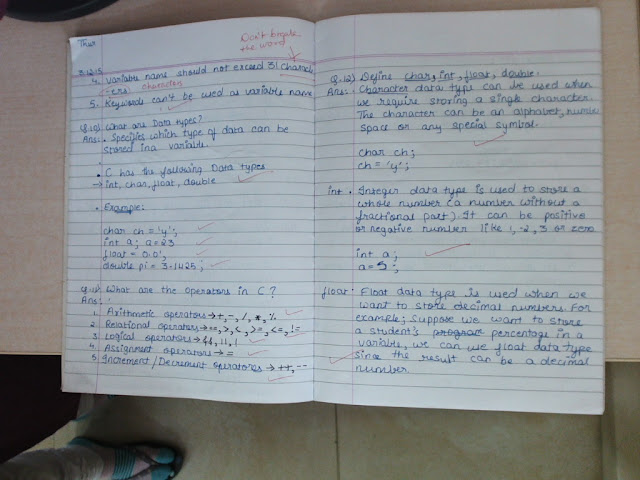 Thur
3.12.15
Don't break
the word
4. Variable name should not exceed 31 charac
ters) characters
5. Keywords can't be used as variable name
Q.10) What are Data types?
Ans: • Specifies which type of data can be
stored in a variable.
• C has the following Data types
→ int, char, float, double
• Example:
char ch = 'y';
int a; a=23
float = 0.0';
double pi = 3.1425;
What are the operators in C?
Ans:
1. Arithmetic operators → +, -, /, *, %
2. Relational operators → ==, >, <, >=, <=, !=
3. Logical operators → &&, ||, !
4. Assignment operators → =
5. Increment/Decrement operators → ++, --
Q.12) Define char, int, float, double.
Ans: Character data type can be used when
we require storing a single character.
The character can be an alphabet,
space or any special symbol.
char ch;
ch = 'y';
int • Integer data type is used to store a
whole number (a number without a
fractional part). It can be positive
or negative number like 1, -2, 3 or zero
int a;
a=5;
float: Float data type is used when we
want to store decimal numbers. For
example; suppose we want to store
a student's program percentage in a
variable, we can use float data type
since the result can be a decimal
number.